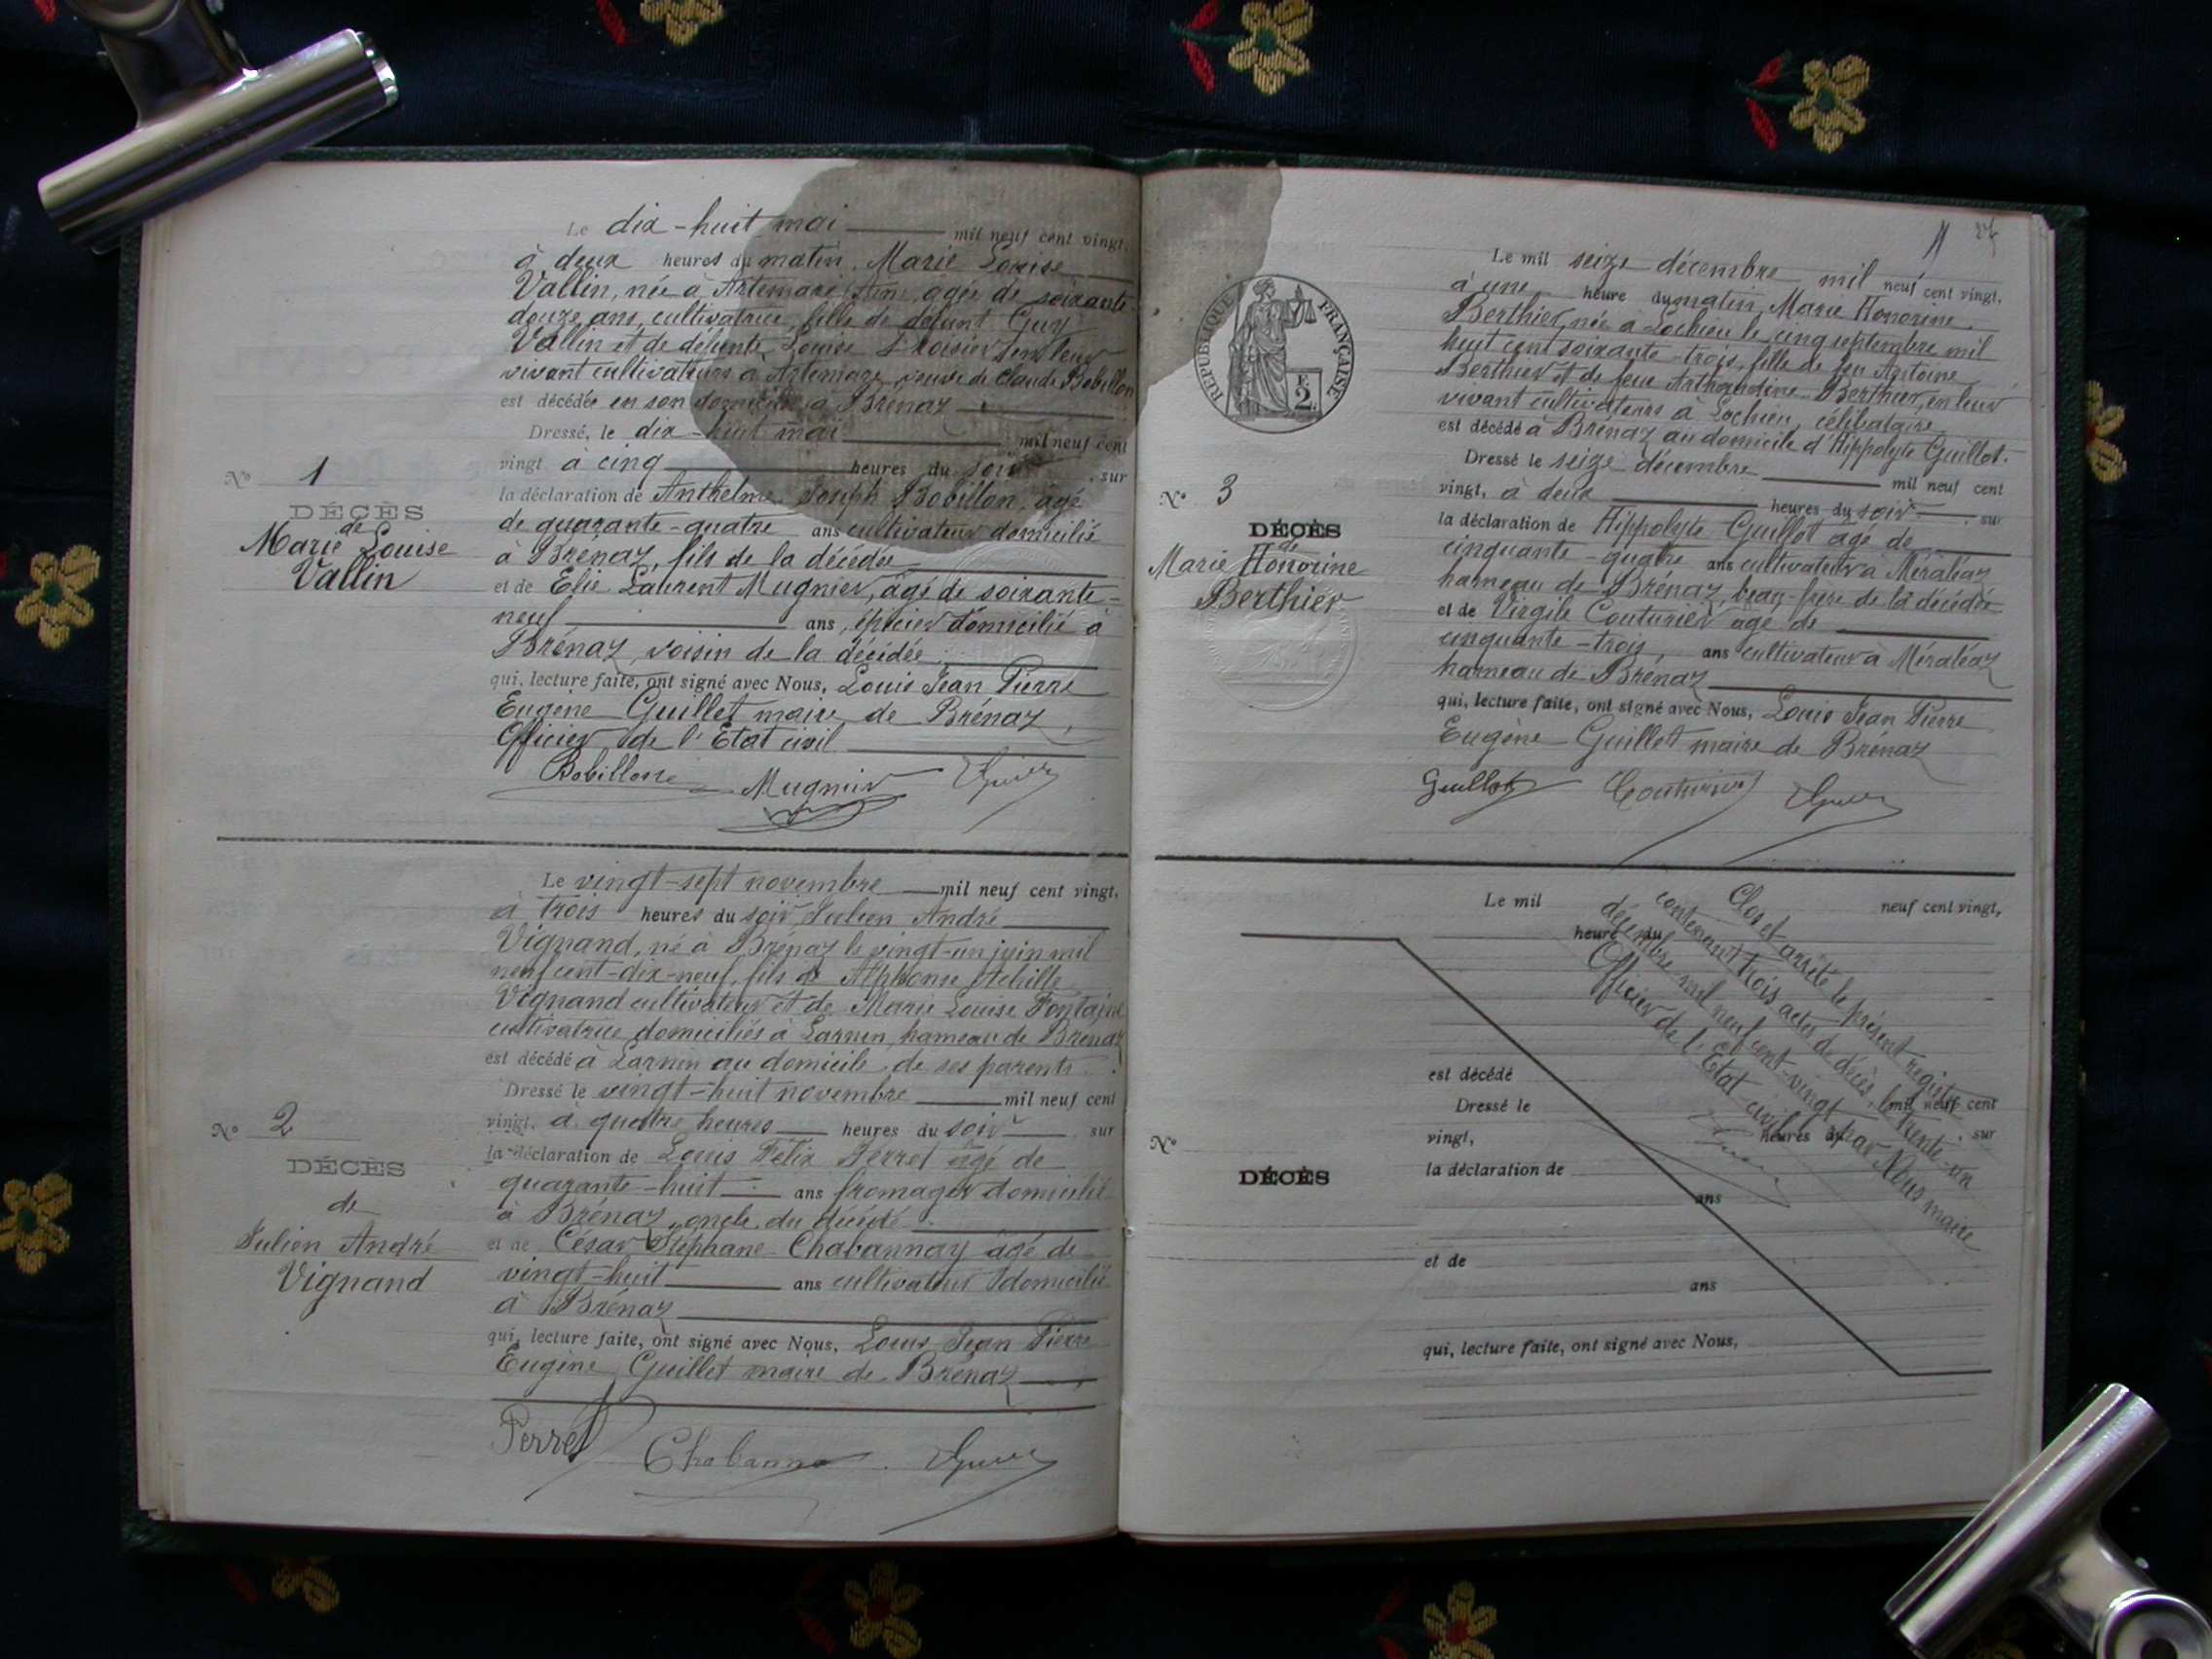 Le dix-huit mai mil neuf cent vingt,
à deux heures du matin, Marie Louise
Vallin, née à Artemare, Ain, agée de soixante-
douze ans, cultivatrice, fille de défunt Guy
Vallin et de défunte Louise en leur
vivant cultivateurs à Artemare, veuve de Claude Bobillon
est décédée en son domicile à Brénaz
Dressé, le dix-huit mai mil neuf cent
vingt à cinq heures du soir, sur
la déclaration de Anthelme Joseph Bobillon, âgé
de quarante-quatre ans cultivateur domicilié
à Brénaz, fils de la décédée
et de Elie Laurent Mugnier, âgé de soixante-
neuf ans, épicier domicilié à
Brénaz, voisin de la décédée
qui, lecture faite, ont signé avec Nous, Louis Jean Pierre
Eugène Guillet maire de Brénaz,
Officier de l'Etat civil
Bobillon Mugnier
No 1
DÉCÈS
de
Marie Louise
Vallin
Le vingt-sept novembre mil neuf cent vingt,
à trois heures du soir Julien André
Vignand, né à Brénaz le vingt-un juin mil
neuf cent-dix-neuf, fils de Alphonse Achille
Vignand cultivateur et de Marie Louise Fontaine
cultivatrice domiciliés à Larnin, hameau de Brénaz
est décédé à Larnin au domicile de ses parents.
Dressé le vingt-huit novembre mil neuf cent
vingt, à quatre heures heures du soir, sur
la déclaration de Louis Félix Perret âgé de
quarante-huit ans fromager domicilié
à Brénaz, oncle du décédé
et de César Stéphane Chabannay âgé de
vingt-huit ans cultivateur domicilié
à Brénaz
qui, lecture faite, ont signé avec Nous, Louis Jean Pierre
Eugène Guillet maire de Brénaz
Perret Chabannay
No 2
DÉCÈS
de
Julien André
Vignand
RÉPUBLIQUE FRANÇAISE
2 F
Le mil seize décembre mil neuf cent vingt,
à une heure du matin, Marie Honorine
Berthier, née à Lochieu le cinq septembre mil
huit cent soixante-trois, fille de feu Antoine
Berthier et de feue Berthier, en leur
vivant cultivateurs à Lochieu, célibataire
est décédé à Brénaz au domicile d'Hippolyte Guillot.
Dressé le seize décembre mil neuf cent
vingt, à deux heures du soir, sur
la déclaration de Hippolyte Guillot âgé de
cinquante-quatre ans cultivateur à Méraléaz
hameau de Brénaz, beau-frère de la décédée
et de Virgile Couturier âgé de
cinquante-trois, ans cultivateur à Méraléaz
hameau de Brénaz
qui, lecture faite, ont signé avec Nous, Louis Jean Pierre
Eugène Guillet maire de Brénaz
Guillot Couturier
No 3
DÉCÈS
de
Marie Honorine
Berthier
Le mil neuf cent vingt,
heure du
est décédé
Dressé le mil neuf cent
vingt, heures du , sur
la déclaration de
ans
et de
ans
qui, lecture faite, ont signé avec Nous,
No
DÉCÈS
Clos et arrêté le présent registre
contenant trois actes de décès, le trente-un
décembre mil neuf cent-vingt par Nous maire
Officier de l'Etat civil